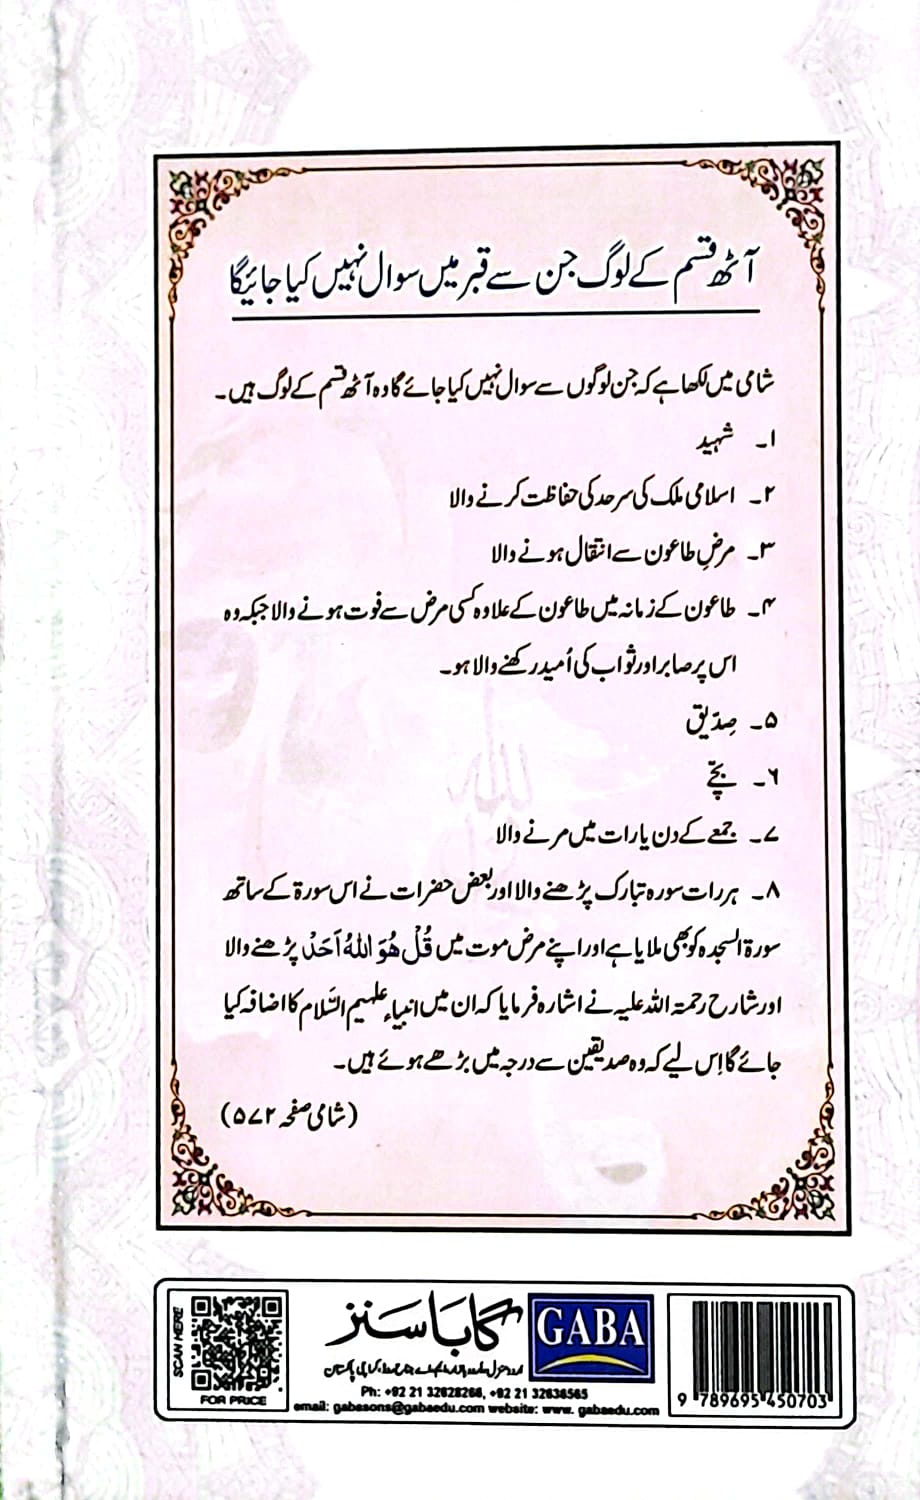 آٹھ قسم کے لوگ جن سے قبر میں سوال نہیں کیا جائیگا
شامی میں لکھا ہے کہ جن لوگوں سے سوال نہیں کیا جائے گا وہ آٹھ قسم کے لوگ ہیں۔
۱۔ شہید
۲۔ اسلامی ملک کی سرحد کی حفاظت کرنے والا
۳۔ مرضِ طاعون سے انتقال ہونے والا
۴۔ طاعون کے زمانہ میں طاعون کے علاوہ کسی مرض سے فوت ہونے والا جبکہ وہ
اس پر صابر اور ثواب کی اُمید رکھنے والا ہو۔
۵۔ صِدّیق
۶۔ بچّے
۷۔ جمعے کے دن یا رات میں مرنے والا
۸۔ ہر رات سورہ تبارک پڑھنے والا اور بعض حضرات نے اس سورۃ کے ساتھ
سورۃ السجدہ کو بھی ملایا ہے اور اپنے مرض موت میں قُلْ هُوَ اللّٰهُ اَحَدٌ پڑھنے والا
اور شارح رحمۃ اللہ علیہ نے اشارہ فرمایا کہ ان میں انبیاء علیہم السَّلام کا اضافہ کیا
جائے گا اِس لیے کہ وہ صدیقین سے درجہ میں بڑھے ہوئے ہیں۔
(شامی صفحہ ۵۷۲)
اللہ
SCAN HERE
FOR PRICE
گاباسنز
GABA
Ph: +92 21 32628266, +92 21 32636565
email: gabasons@gabaedu.com website: www. gabaedu.com
9 789695 450703